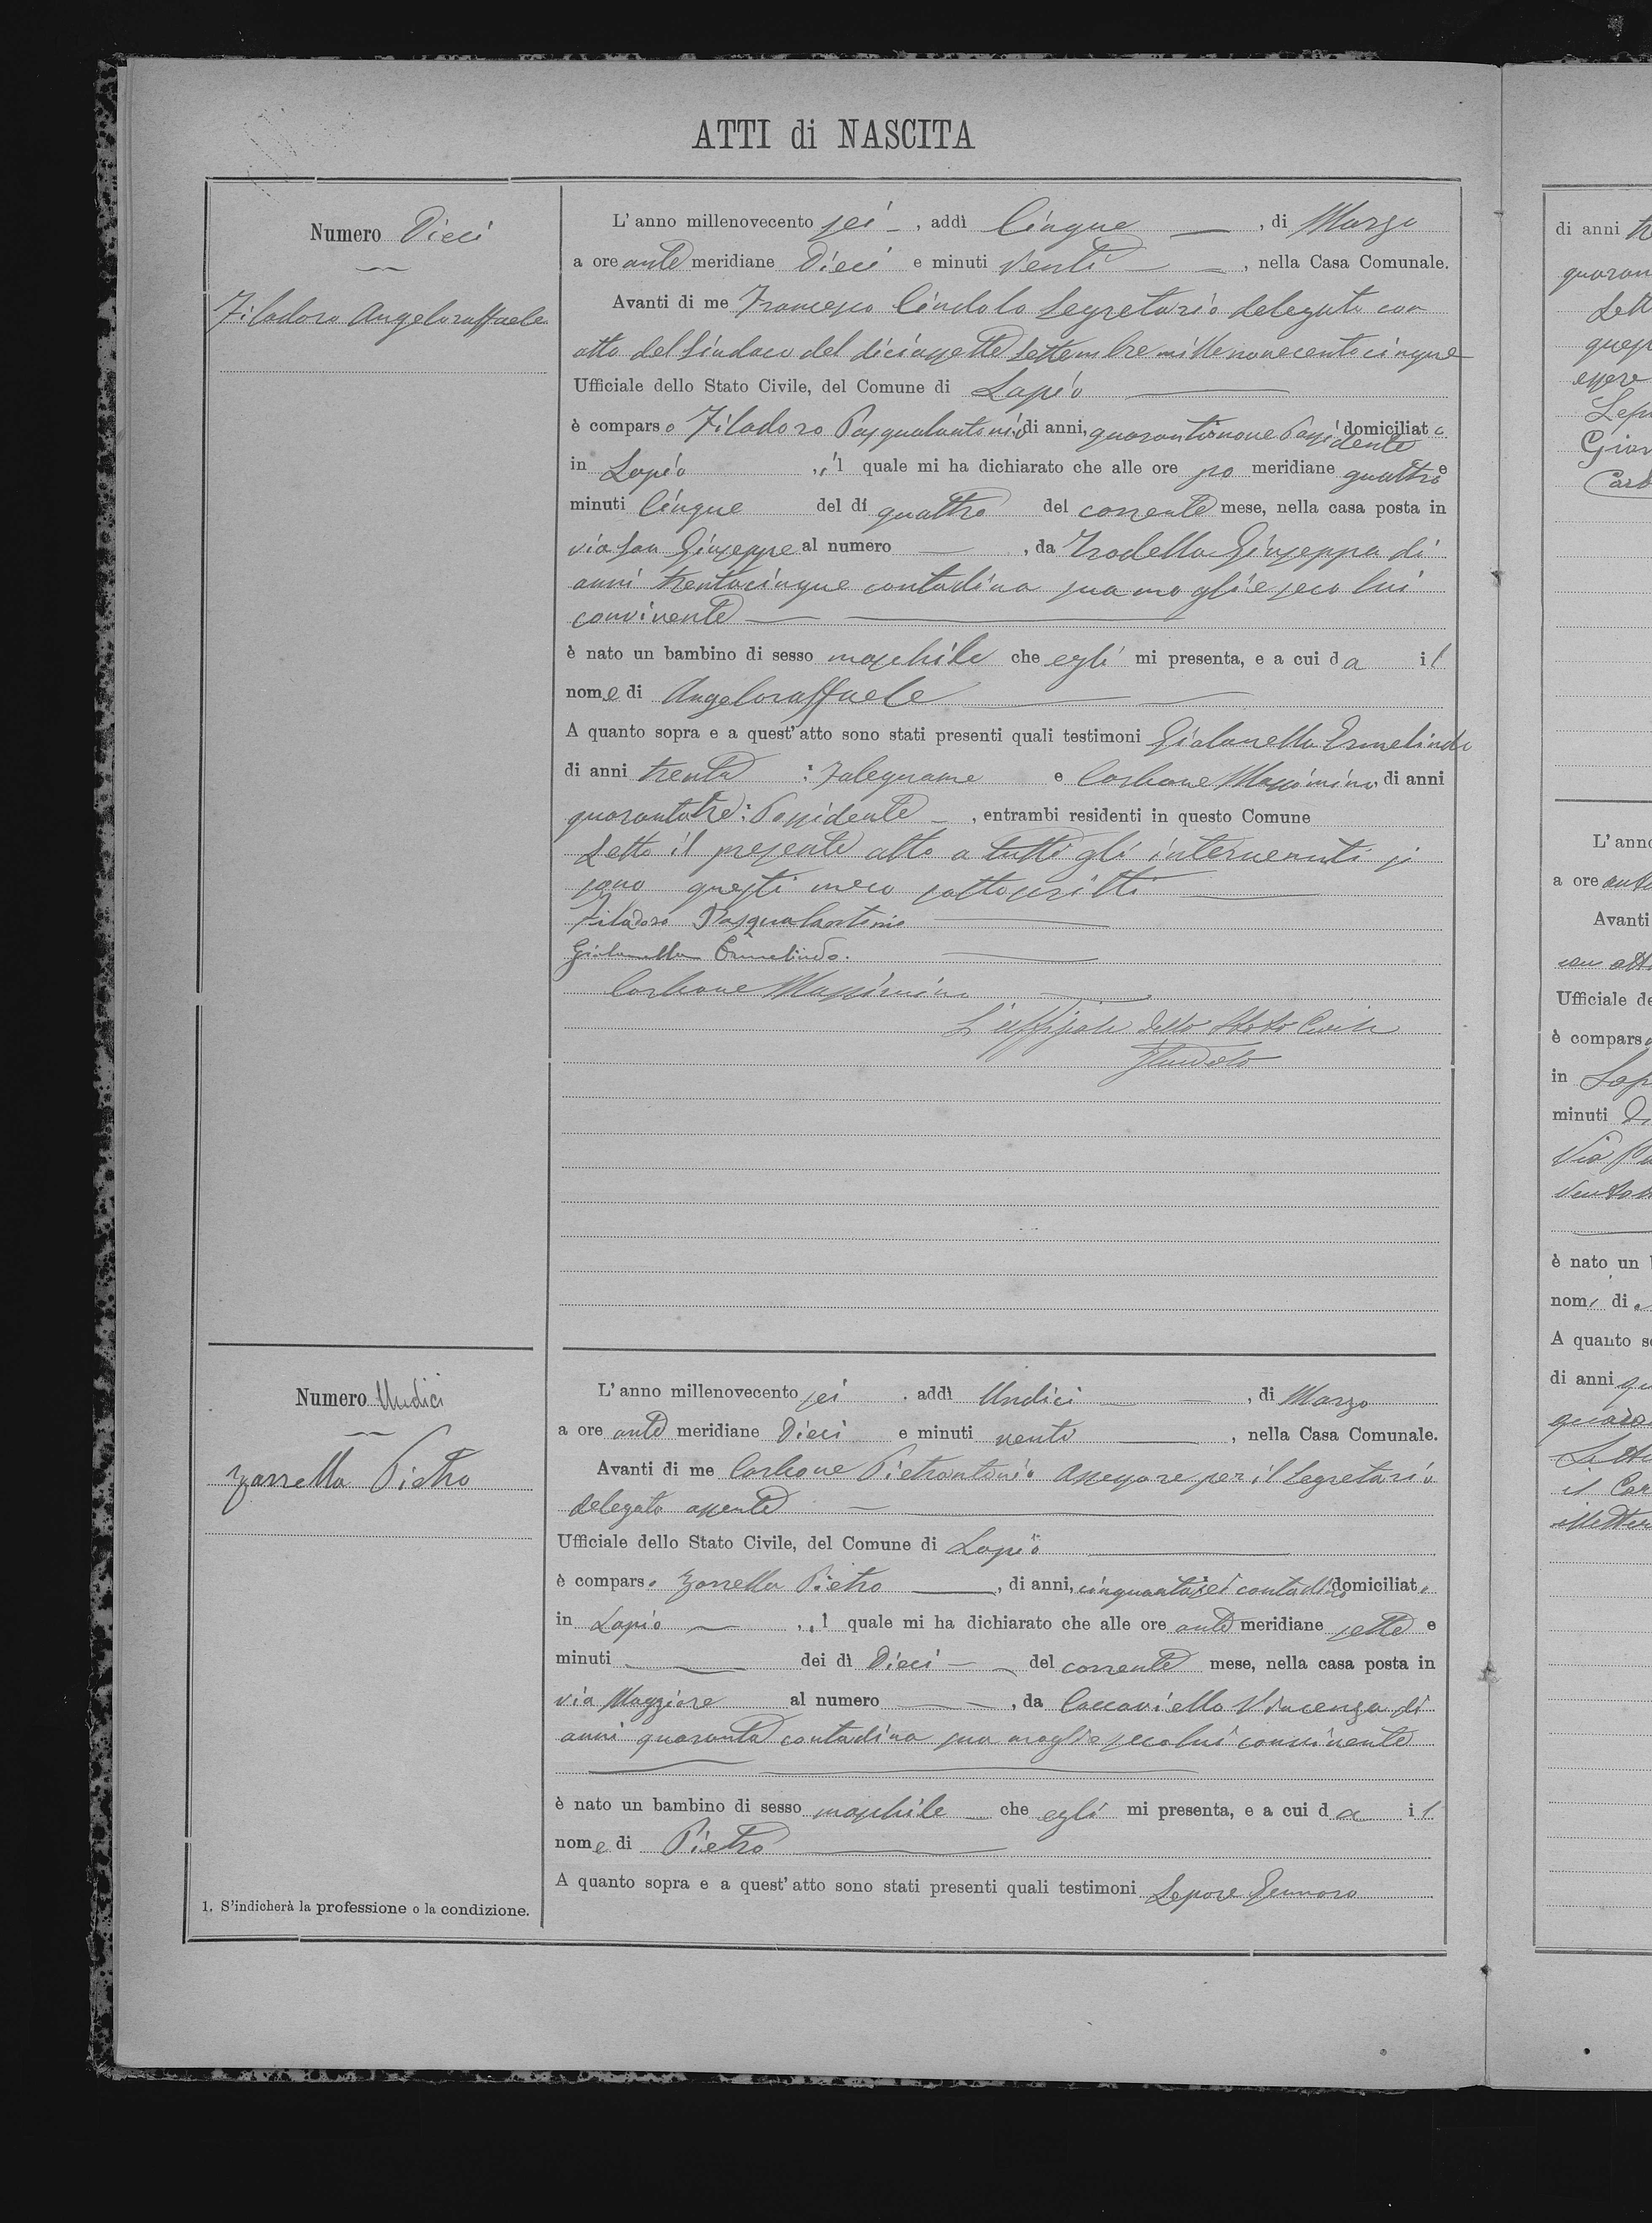 ATTI di NASCITA
Numero Dieci
Filadoro Angeloraffaele
L'anno millenovecento sei, addì Cinque, di Marzo
a ore ante meridiane Dieci e minuti venti, nella Casa Comunale.
Avanti di me Francesco Cindolo Segretario delegato con
atto del Sindaco del diciassette Settembre millenovecentocinque
Ufficiale dello Stato Civile, del Comune di Lapio
è comparso Filadoro Pasqualantonio di anni, quarantanove Possidente domiciliato
in Lapio, il quale mi ha dichiarato che alle ore po meridiane quattro e
minuti Cinque del dí quattro del corrente mese, nella casa posta in
via San Giuseppe al numero, da Giuseppa di
anni trentacinque contadina sua moglie seco lui
convivente
è nato un bambino di sesso maschile che egli mi presenta, e a cui da il
nome di Angeloraffaele
A quanto sopra e a quest'atto sono stati presenti quali testimoni Gialanella Ermelindo
di anni trenta: Falegname e Carbone Massimino, di anni
quarantatre: Possidente, entrambi residenti in questo Comune
Letto il presente atto a tutti gli intervenuti si
sono questi meco sottoscritti
Filadoro Pasqualantonio
Gialanella Ermelindo.
Carbone Massimino
L'uffiziale dello Stato Civile
FCindolo
Numero Undici
Zarrella Pietro
L'anno millenovecento sei, addì Undici, di Marzo
a ore ante meridiane Dieci e minuti venti, nella Casa Comunale.
Avanti di me Carbone Pietrantonio Assessore per il Segretario
delegato assente
Ufficiale dello Stato Civile, del Comune di Lapio
è comparso Zarrella Pietro, di anni, cinquantasei contadino domiciliato
in Lapio, il quale mi ha dichiarato che alle ore ante meridiane sette e
minuti dei dì Dieci del corrente mese, nella casa posta in
via Maggiore al numero, da Caccaviello Vincenza di
anni quaranta contadina sua moglie seco lui convivente
è nato un bambino di sesso maschile che egli mi presenta, e a cui da il
nome di Pietro
A quanto sopra e a quest'atto sono stati presenti quali testimoni Lepore Gennaro
1. S'indicherà la professione o la condizione.
di anni
L'anno
a ore ante
Avanti
con atto
Ufficiale de
è compars
in Lap
minuti
Via
è nato un
nom di
A quanto so
di anni